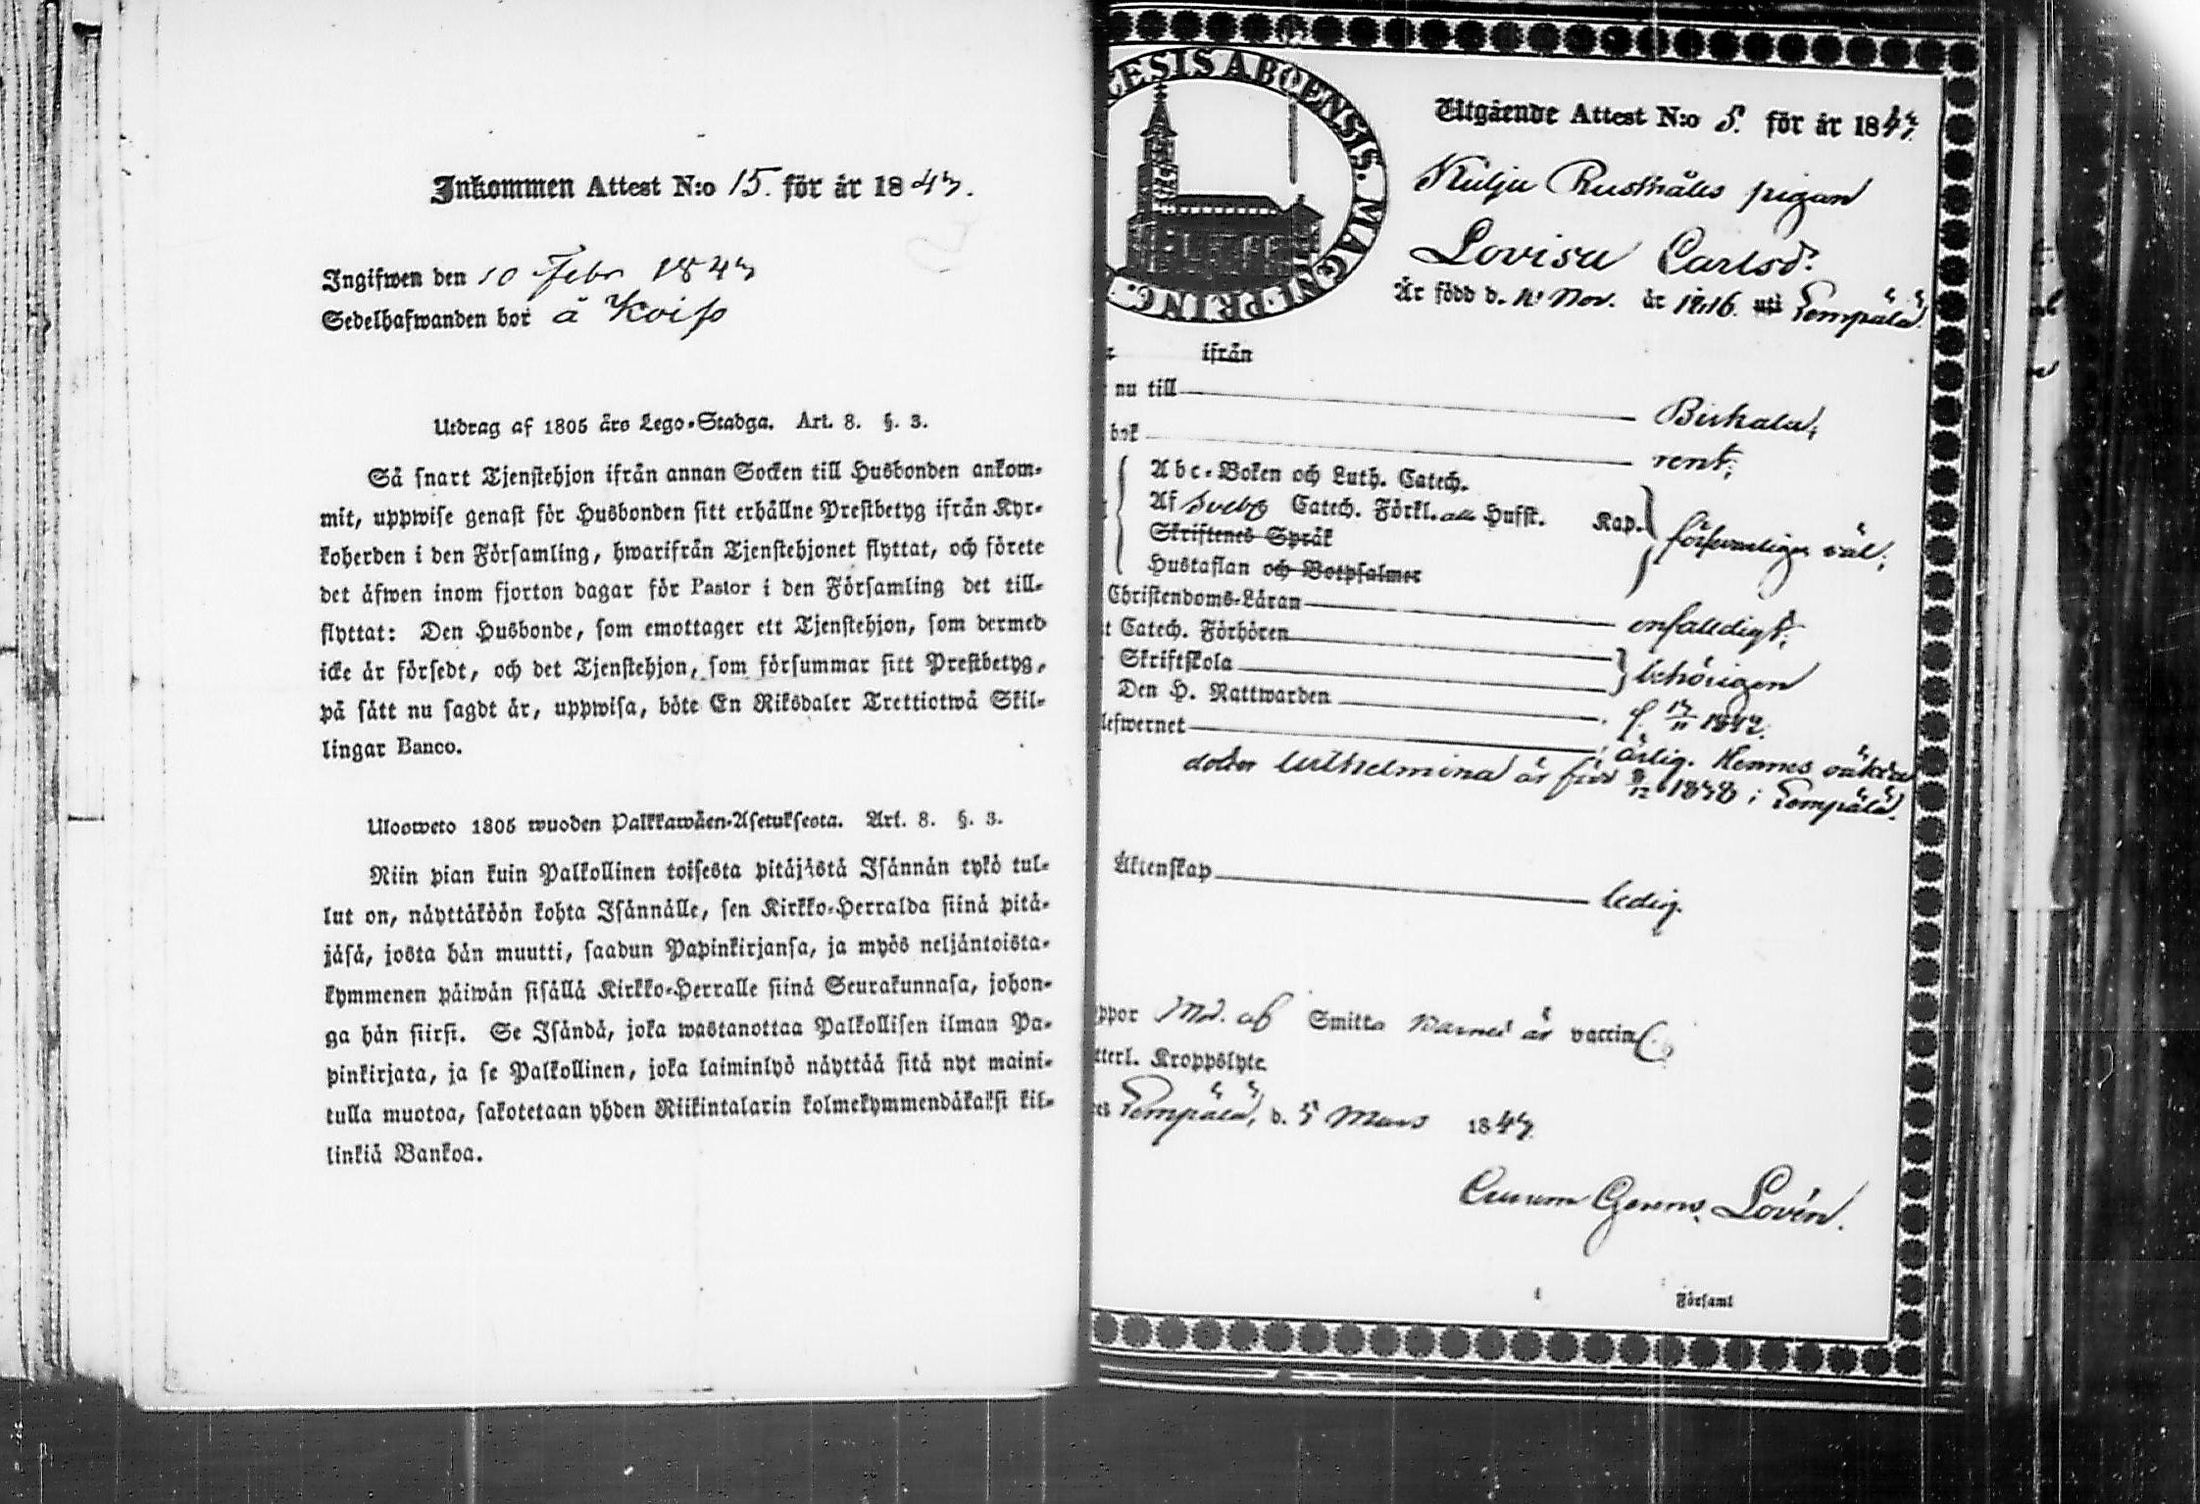 Inkommen Attest N:o 15. för år 1843.
Ingifwen den 10 Febr 1843
Sedelhafwanden bor å Koifo
Utdrag af 1805 års Lego-Stadga. Art. 8. §. 3.
Så snart Tjenstehjon ifrån annan Socken till Husbonden ankom-
mit, uppwise genast för Husbonden sitt erhållne Prestbetyg ifrån Kyr-
koherden i den Församling, hwarifrån Tjenstehjonet flyttat, och förete
det äfwen inom fjorton dagar för Pastor i den Församling det till-
flyttat: Den Husbonde, som emottager ett Tjenstehjon, som dermed
icke är försedt, och det Tjenstehjon, som försummar sitt Prestbetyg,
på sätt nu sagdt är, uppwisa, böte En Riksdaler Trettiotwå Skil-
lingar Banco.
Ulosweto 1805 wuoden Palkkawäen-Asetuksesta. Art. 8. §. 3.
Niin pian kuin Palkollinen toisesta pitäjästä Isännän tykö tul-
lut on, näyttäköön kohta Isännälle, sen Kirkko-Herralda siinä pitä-
jäsä, josta hän muutti, saadun Papinkirjansa, ja myös neljäntoista-
kymmenen päiwän sisällä Kirkko-Herralle siinä Seurakunnasa, johon-
ga hän siirsi. Se Isändä, joka wastanottaa Palkollisen ilman Pa-
pinkirjata, ja se Palkollinen, joka laiminlyö näyttää sitä nyt maini-
tulla muotoa, sakotetaan yhden Riikintalarin kolmekymmendäkaksi kil-
linkiä Bankoa.
CESIS ABOENSIS. MAGNI PRINC.
Utgående Attest N:o 5. för år 1843.
Kulju Rusthålls pigan
Lovisa Carlsd:r
Är född d. Nov. år 1816. uti Lempälä.
ifrån
nu till Birkala;
bok rent;
Abc-Boken och Luth. Catech.
Af Svebg Catech. Förkl. alla Husst. Kap. församligen väl;
Skriftenes Språk
Hustaflan och Botpsalmer
Christendoms-Läran enfaldigt;
t Catech. Förhören
Skriftskola behörigen
Den H. Nattwarden 1842.
lefwernet ärlig. Hennes oäkta
dotter Wilhelmina är född 1838 i Lempälä.
Äktenskap ledig.
ppor Md. af Smitta Namnes är vaccin
tterl. Kroppslyte
es Lempälä, d. 5 Mars 1843.
Lovén.
i Församl